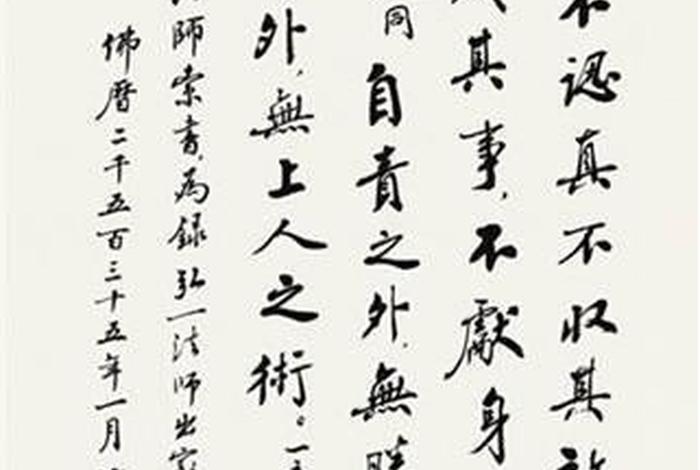 不認真不收其
其事，不獻身
同 自責之外，無
外，無上人之術。一
師索書，為錄弘一法師出家
佛曆二千五百三十五年一月